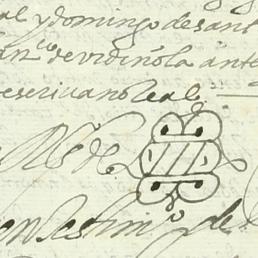 al y domingo de sant
fran^co de vidiñola ante
escrivano Real
de
en testim^o de